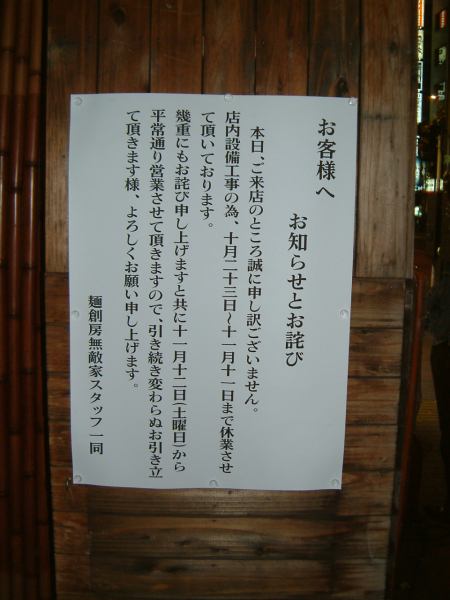 お客様へ
お知らせとお詫び
本日、ご来店のところ誠に申し訳ございません。
店内設備工事の為、十月二十三日～十一月十一日まで休業させ
て頂いております。
幾重にもお詫び申し上げますと共に十一月十二日(土曜日)から
平常通り営業させて頂きますので、引き続き変わらぬお引き立
て頂きます様、よろしくお願い申し上げます。
麺創房無敵家スタッフ一同